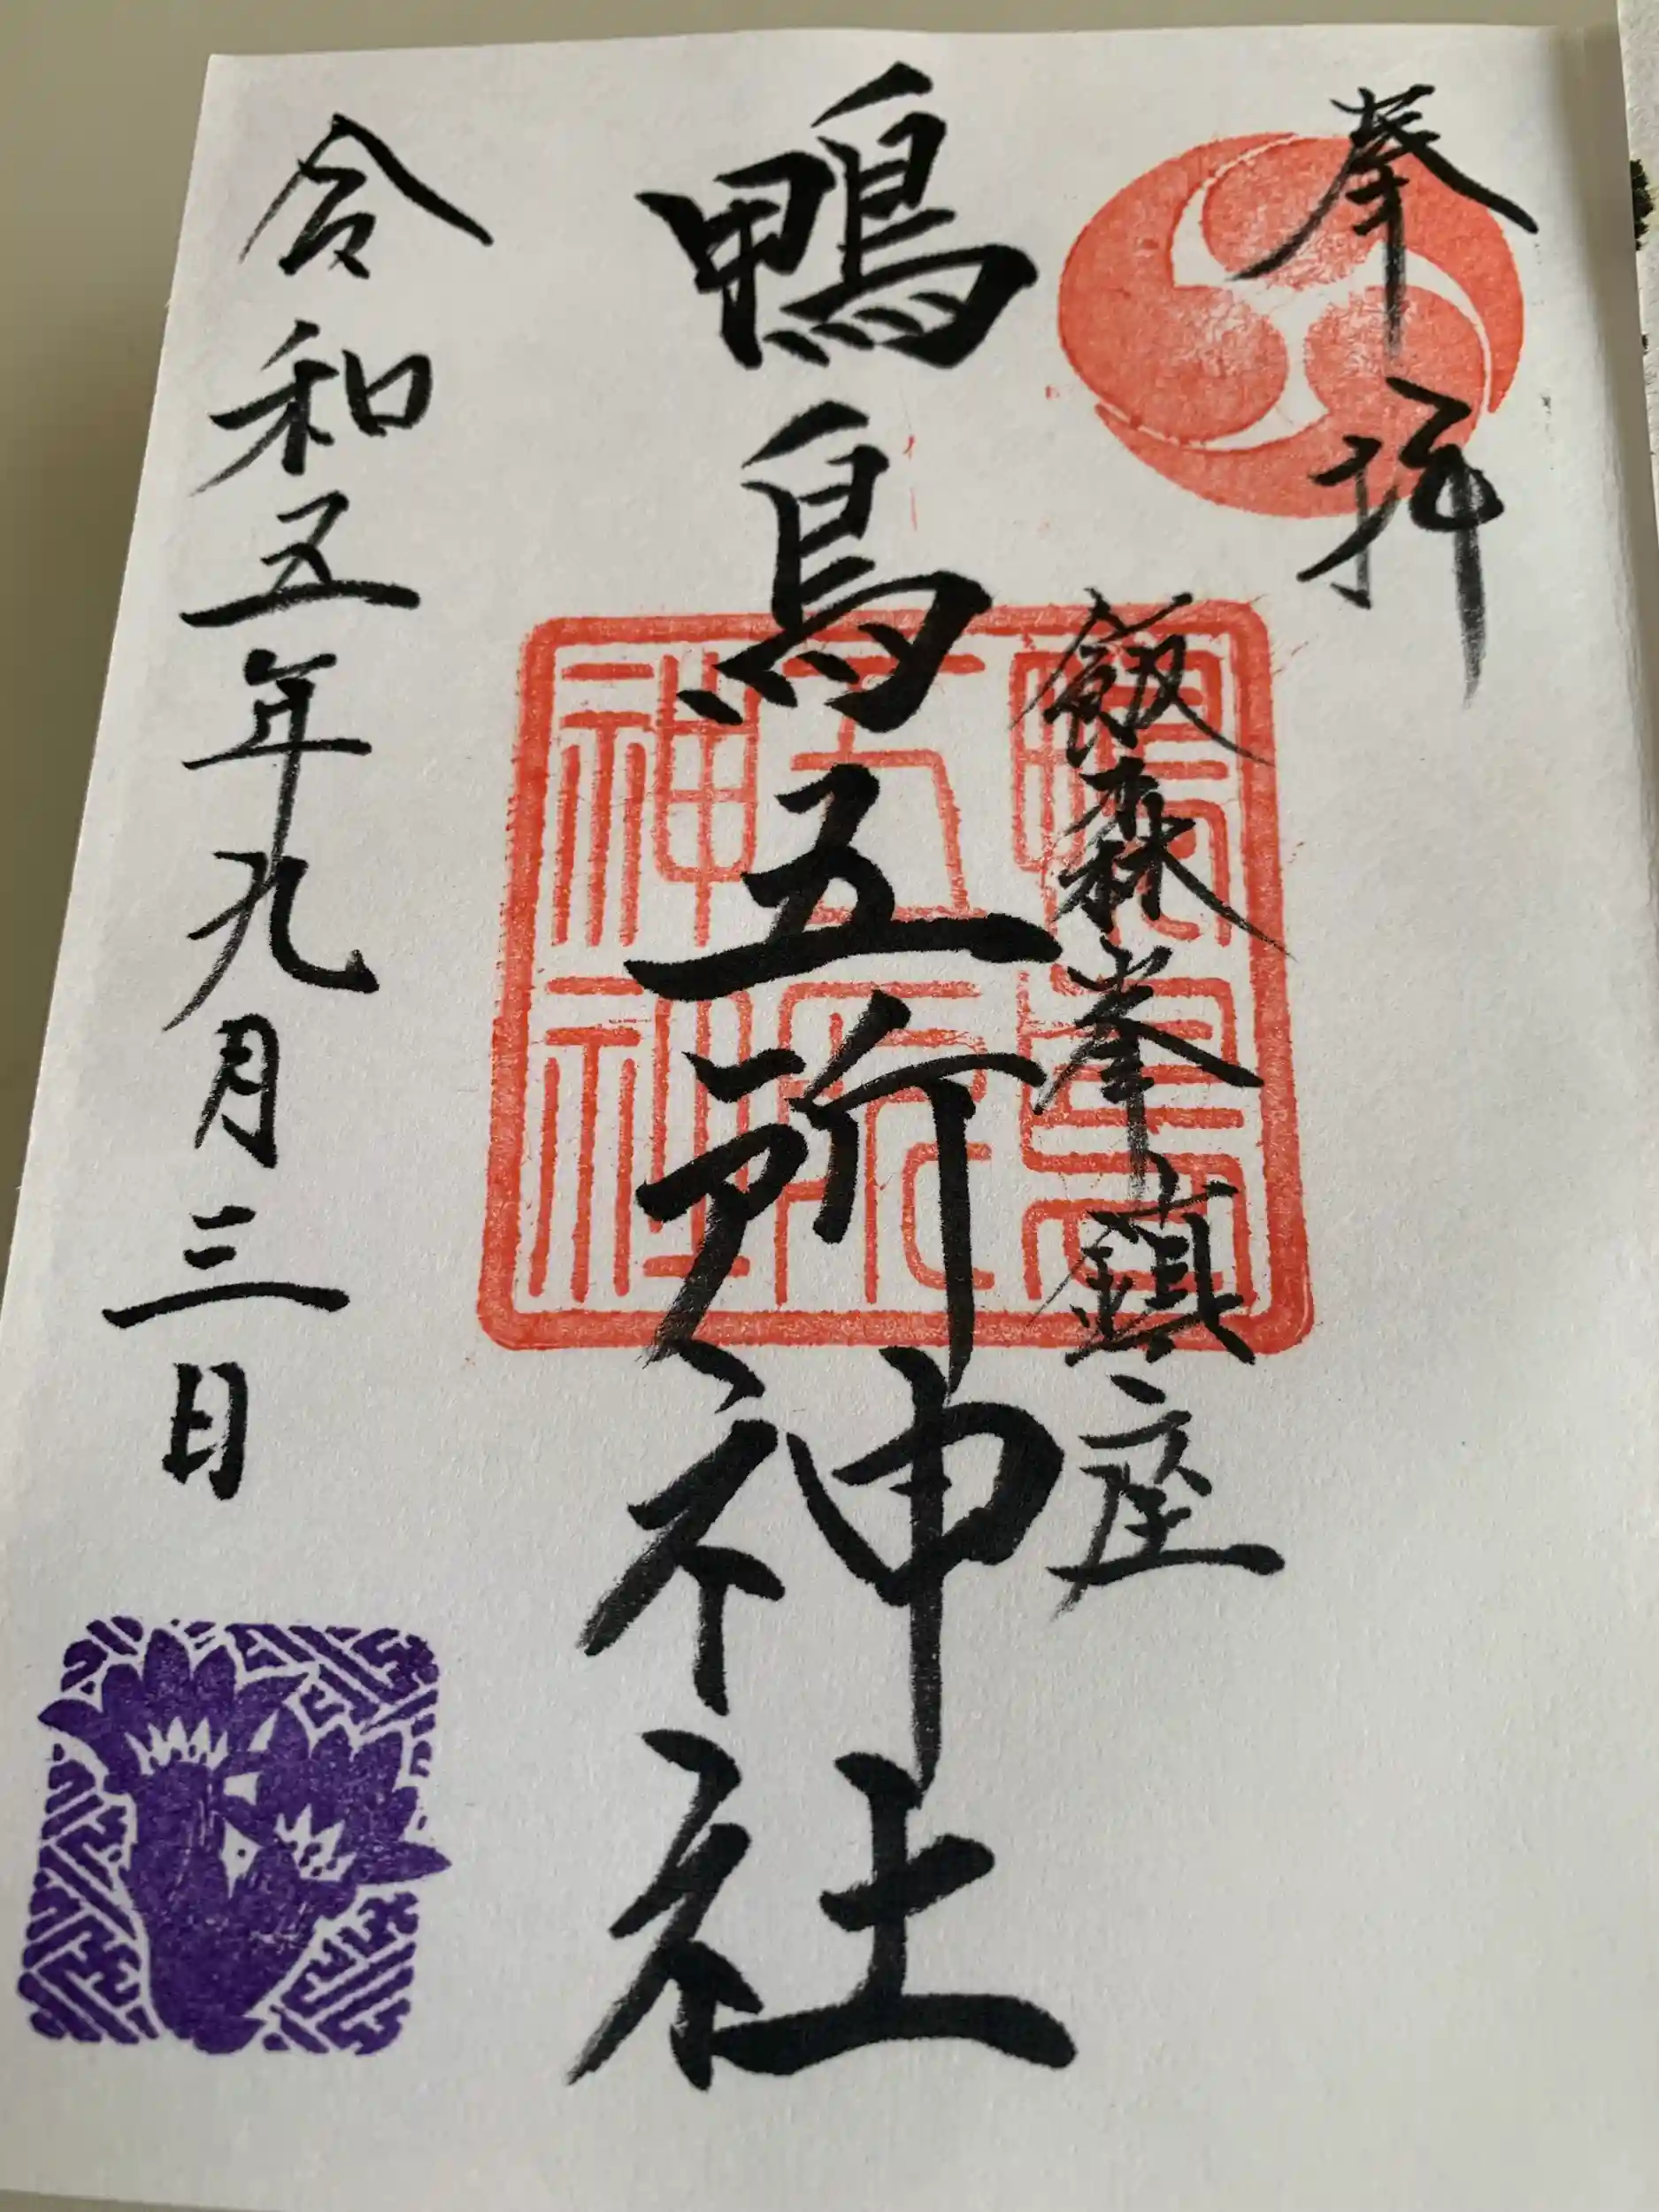 奉拝
飯森峯鎮座
鴨鳥五所神社
令和五年九月三日
鴨鳥
五所
神社